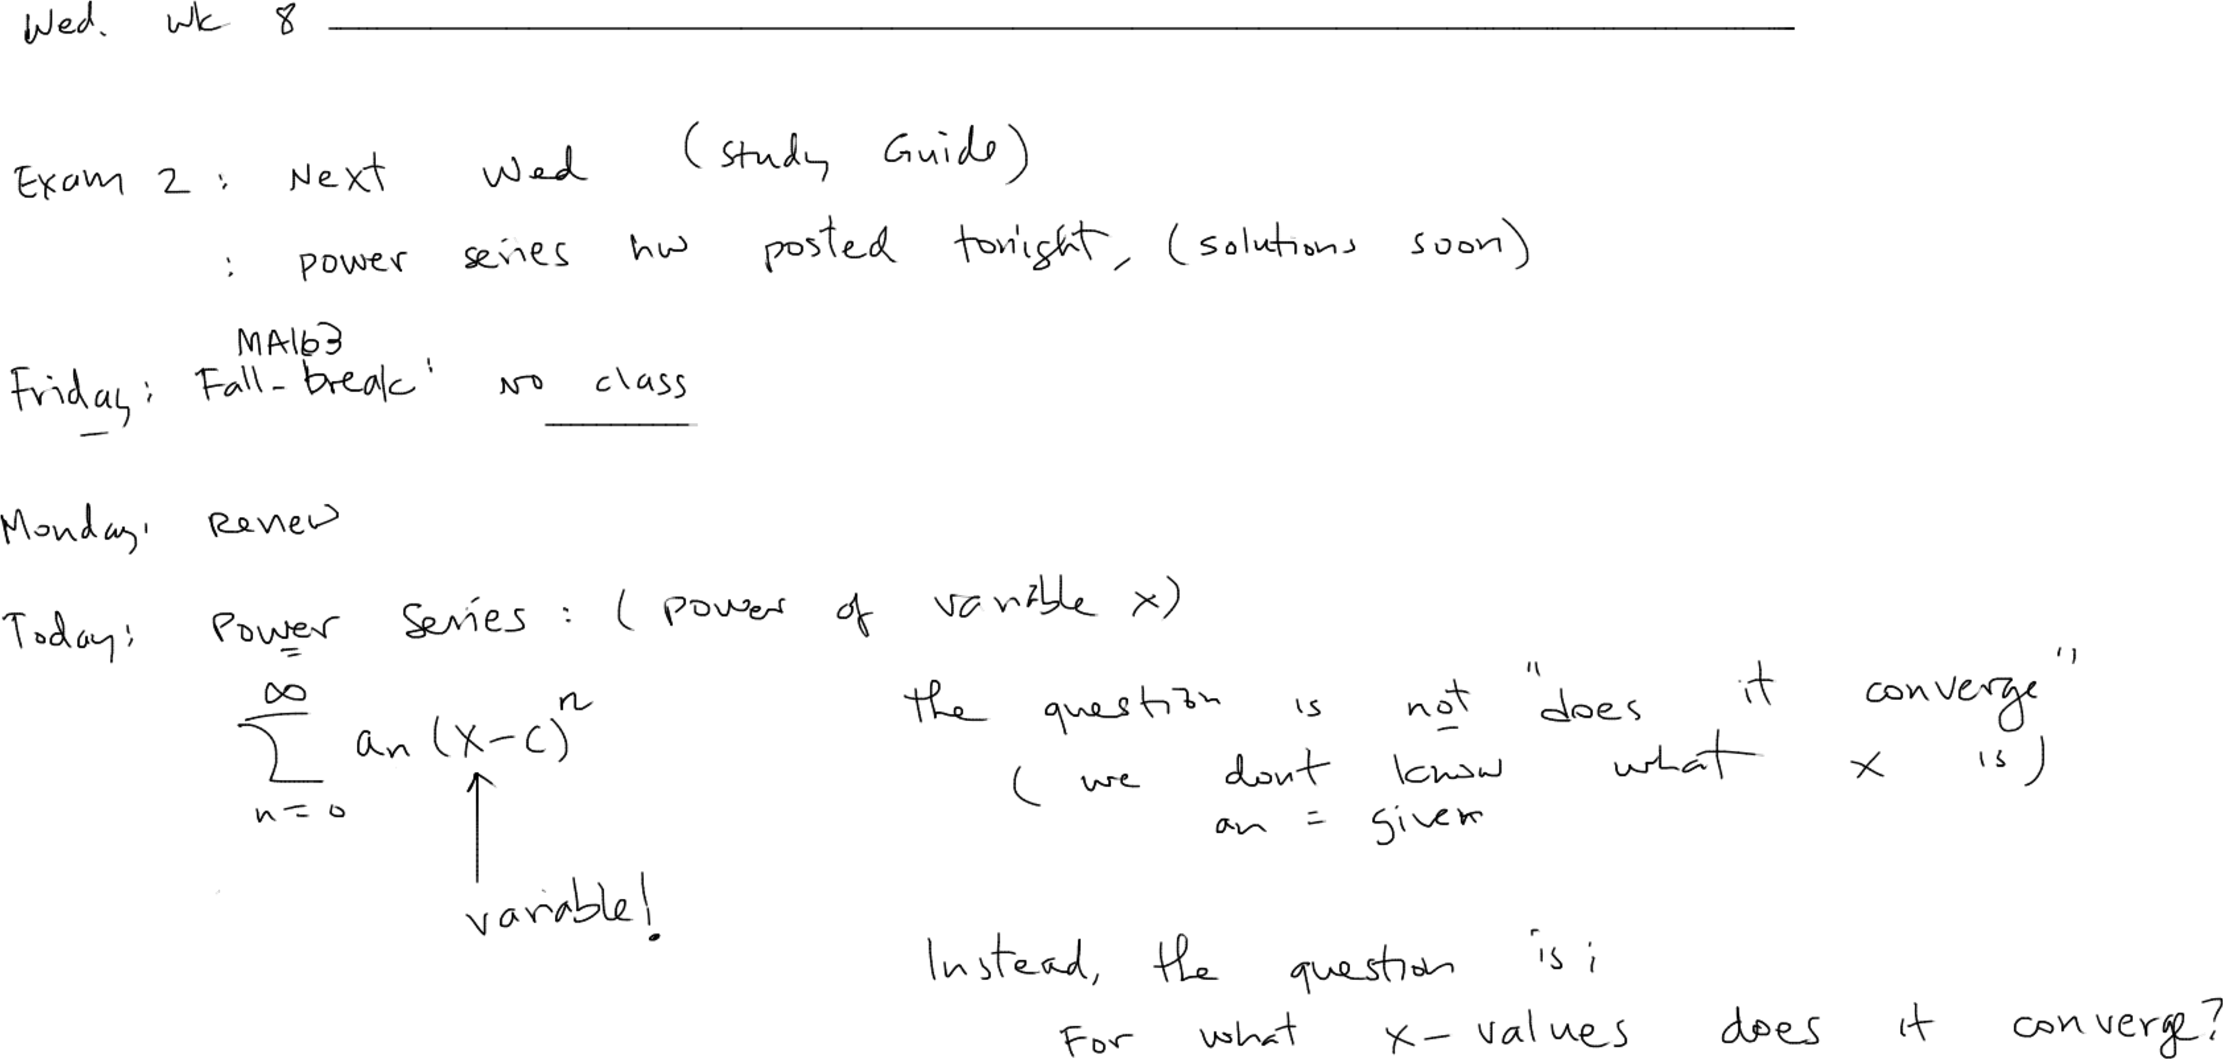 Wed. wk 8
Exam 2: Next Wed (Study Guide)
: power series hw posted tonight, (solutions soon)
MA163
Friday: Fall-break: No class
Monday: Review
Today: Power Series: (power of variable x)
∞
∑ an (x-c)^n
n=0
variable!
the question is not "does it converge"
(we dont know what x is)
an = given
Instead, the question is:
For what x-values does it converge?